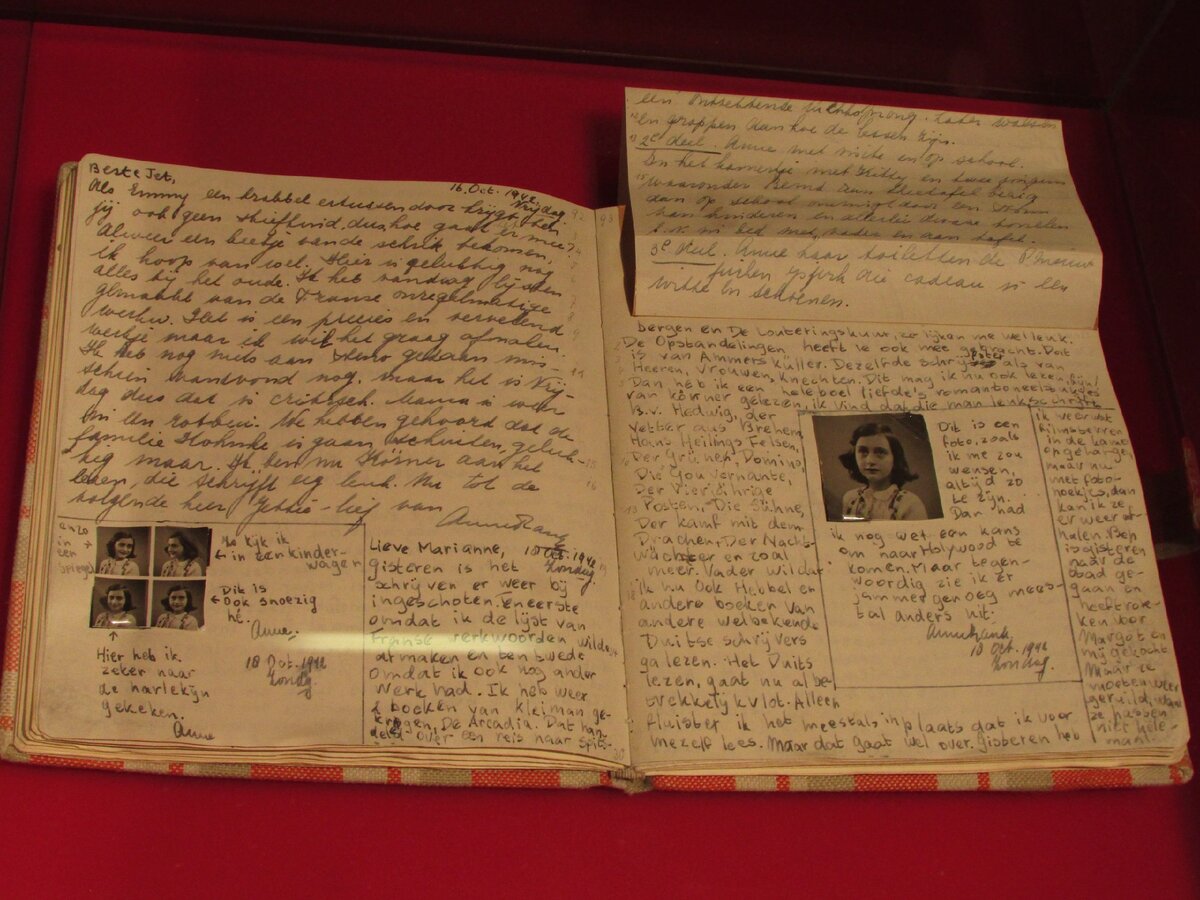 Beste Jet,
16 Oct. 1942
Vrijdag
Als Emmy een krabbel ertussendoor krijgt, ben
jij ook geen stiefkind, dus hoe gaat er mee?
Alweer een beetje van de schrik bekomen,
ik hoop van wel. Hier is gelukkig nog
alles bij het oude. Ik heb vandaag lijsten
gemaakt van de Franse onregelmatige
werkw. Het is een precies en vervelend
werkje maar ik wil het graag afmaken.
Ik heb nog niets aan steno gedaan mis-
schien vanavond nog, maar het is Vrij-
dag dus dat is critisch. Mama is weer
in een rotbui. We hebben gehoord dat de
familie is gaan geluk-
kig maar. Ik ben nu Körner aan het
lezen, die schrijft erg leuk. Nu tot de
volgende keer Jettie-lief van
Anne Frank
enzo
in
een
spiegel
Zo kijk ik
in een kinder-
wagen
Dit is
ook snoezig
hè.
Anne.
18 Oct. 1942
Zondag.
Hier heb ik
zeker naar
de harlekijn
gekeken.
Anne
Lieve Marianne,
18 Oct. 1942
Zondag
gisteren is het
schrijven er weer bij
ingeschoten. Eneerste
omdat ik de lijst van
Franse werkwoorden wilde
afmaken en ten twede
omdat ik ook nog ander
werk had. Ik heb weer
2 boeken van Kleiman ge-
kregen, De Arcadia. Dat han-
deld over een reis naar Spits-
een ontzettende luchtsprong. Later walsen
en grappen dan hoe de lessen zijn.
2e deel. Anne met visite en op school.
In het kamertje met Kitty en twee jongens
waaronder Bernd aan theetafel bezig
dan op school omringt door een
van kinderen en allerlei dwaze tonelen
b.v. in bed met vader en aan tafel.
3e deel. Anne haar toiletten de
jurken die cadeau is een
witte en schoenen.
bergen en De Louteringskuur, ze lijken me wel leuk.
De Opstandelingen heeft ie ook mee gebracht. Dat
is van Ammers Küller. Dezelfde schrijfster als van
Heeren, Vrouwen, Knechten. Dit mag ik nu ook lezen, fijn!
Dan heb ik een heleboel liefde's romantoneelstukjes
van körner gelezen, ik vind dat die man leuk schrijft
B.v. Hedwig, der
Vetter aus Brehem,
Hans Heilings Felsen,
Der Grüner, Domino,
Die Gouvernante,
Der Vierjährige
Posten, Die Sühne,
Der Kamf mit dem
Drachen, Der Nacht-
wächter en zoal
meer. Vader wil dat
ik nu ook Hebbel en
andere boeken van
andere welbekende
Duitse schrijvers
ga lezen. Het Duits
lezen, gaat nu al be-
trekkelijk vlot. Alleen
fluister ik het meestal in plaats dat ik voor
mezelf lees. Maar dat gaat wel over. Gisteren heb
Dit is een
foto, zoals
ik me zou
wensen,
altijd zo
te zijn.
Dan had
ik nog wel een kans
om naar Holywood te
komen. Maar tegen-
woordig zie ik er
jammer genoeg mees-
tal anders uit.
Anne Frank.
18 Oct. 1942
Zondag
ik weer wat
filmsterren
in de kamer
opgehangen,
maar nu
met foto-
hoekjes, dan
kan ik ze
er weer af-
halen. Bep
is gisteren
naar de
stad ge-
gaan en
heeft rok-
ken voor
Margot en
mij gekocht
Maar ze
moeten weer
geruild, want
ze passen
niet hele-
maal.